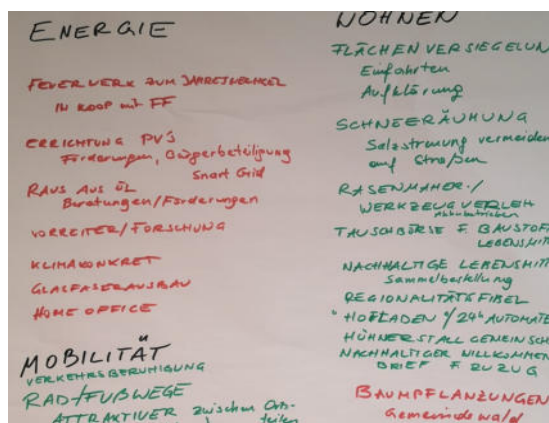 ENERGIE
FEUERWERK ZUM JAHRESWECHSEL
IN KOOP mit FF
ERRICHTUNG PV'S
Förderungen, Bürgerbeteiligung
Smart Grid
RAUS AUS ÖL
Beratungen/Förderungen
VORREITER/FORSCHUNG
KLIMAKONKRET
GLASFASERAUSBAU
HOME OFFICE
MOBILITÄT
VERKEHRSBERUHIGUNG
RAD/FUßWEGE
ATTRAKTIVER zwischen Orts-
teilen
WOHNEN
FLÄCHENVERSIEGELUN
Einfahrten
Aufklärung
SCHNEERÄUMUNG
Salzstreuung vermeiden
auf Straßen
RASENMÄHER-/
WERKZEUGVERLEIH
Akkubetrieben
TAUSCHBÖRSE F. BAUSTOFF
LEBENSMITT
NACHHALTIGE LEBENSMITT
Sammelbestellung
REGIONALITÄTSFIBEL
"HOFLADEN"/24h AUTOMATE
HÜHNERSTALL GEMEINSCH
NACHHALTIGER WILLKOMMEN
BRIEF F ZUZUG
BAUMPFLANZUNGEN
Gemeindewald